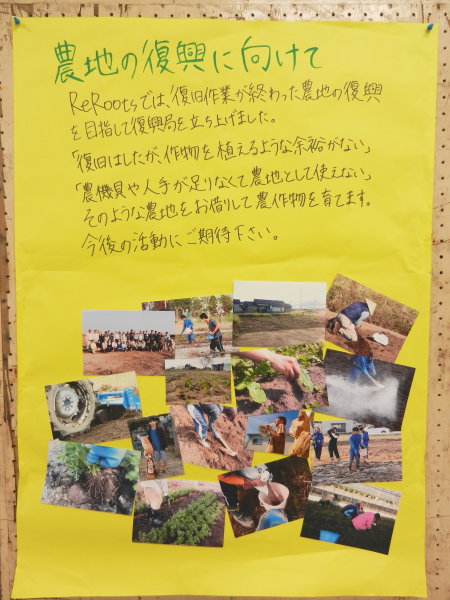 農地の復興に向けて
ReRootsでは、復旧作業が終わった農地の復興
を目指して復興局を立ち上げました。
「復旧はしたが、作物を植えるような余裕がない」
「農機具や人手が足りなくて農地として使えない」
そのような農地をお借りして農作物を育てます。
今後の活動にご期待下さい。